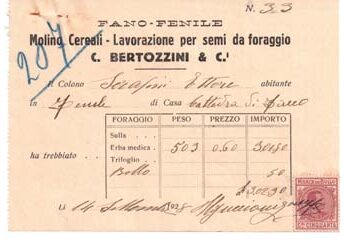 N. 33
FANO-FENILE
207
Molino Cereali - Lavorazione per semi da foraggio
C. BERTOZZINI & C.i
Il Colono Serafini Ettore abitante
in Fenile di Casa Cattedra di Fano
FORAGGIO PESO PREZZO IMPORTO
Sulla
ha trebbiato Erba medica 503 0.60 301.80
Trifoglio
Bollo 50
302.30
li 14 Settembre 1928
CINQUANTA